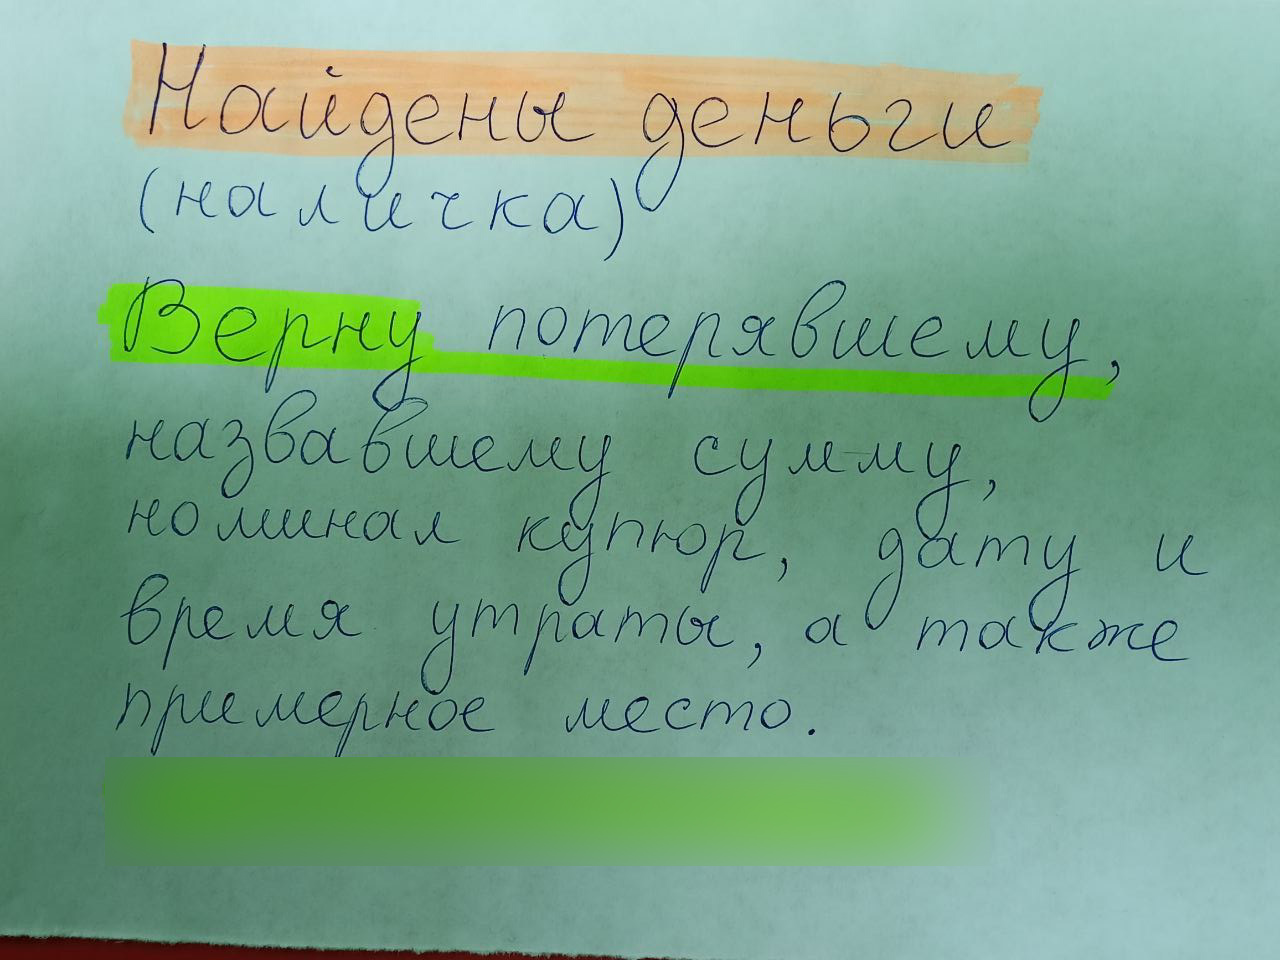 Найдены деньги
(наличка)
Верну потерявшему,
назвавшему сумму,
номинал купюр, дату и
время утраты, а также
примерное место.